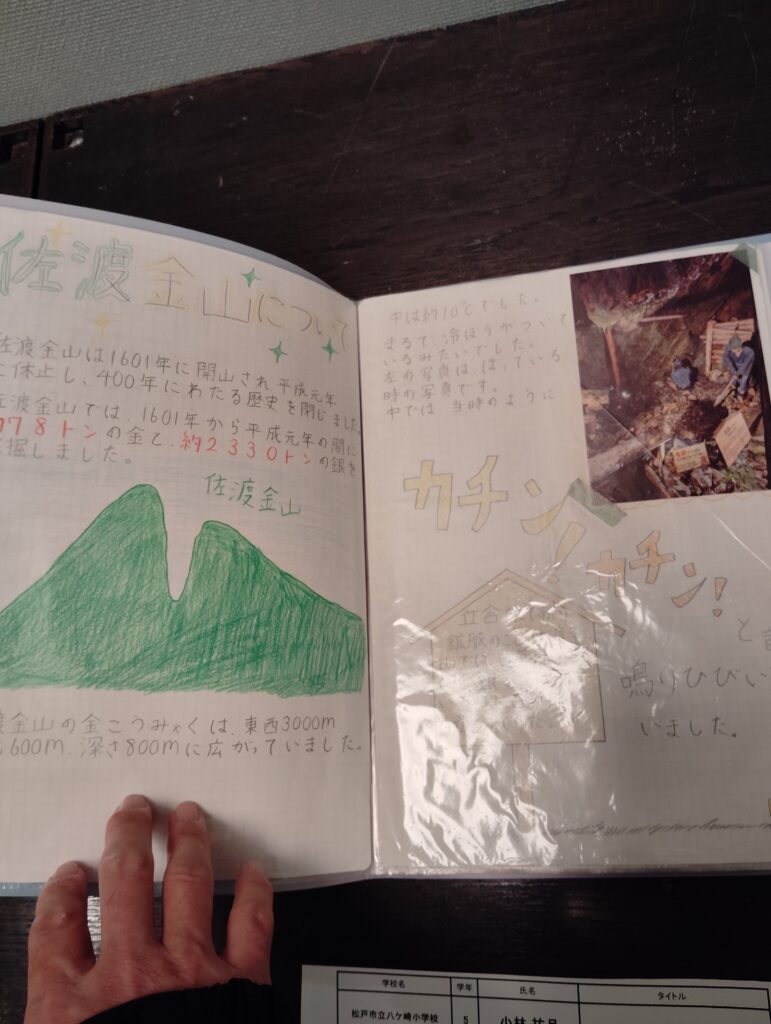 佐渡金山について
佐渡金山は1601年に開山され平成元年
に休止し、400年にわたる歴史を閉じました
佐渡金山では、1601年から平成元年の間に
約78トンの金と、約2330トンの銀を
採掘しました。
佐渡金山
渡金山の金こうみゃくは、東西3000m、
600m、深さ800mに広がっていました。
中は約10℃でした。
まるで、冷ぼうがついて
いるみたいでした。
左の写真は、ほっている
時の写真です。
中では、当時のように
カチン!
カチン!
と
鳴りひびい
いました。
立合
鉱脈の
山では
学校名 学年 氏名 タイトル
松戸市立八ケ崎小学校 5 小林